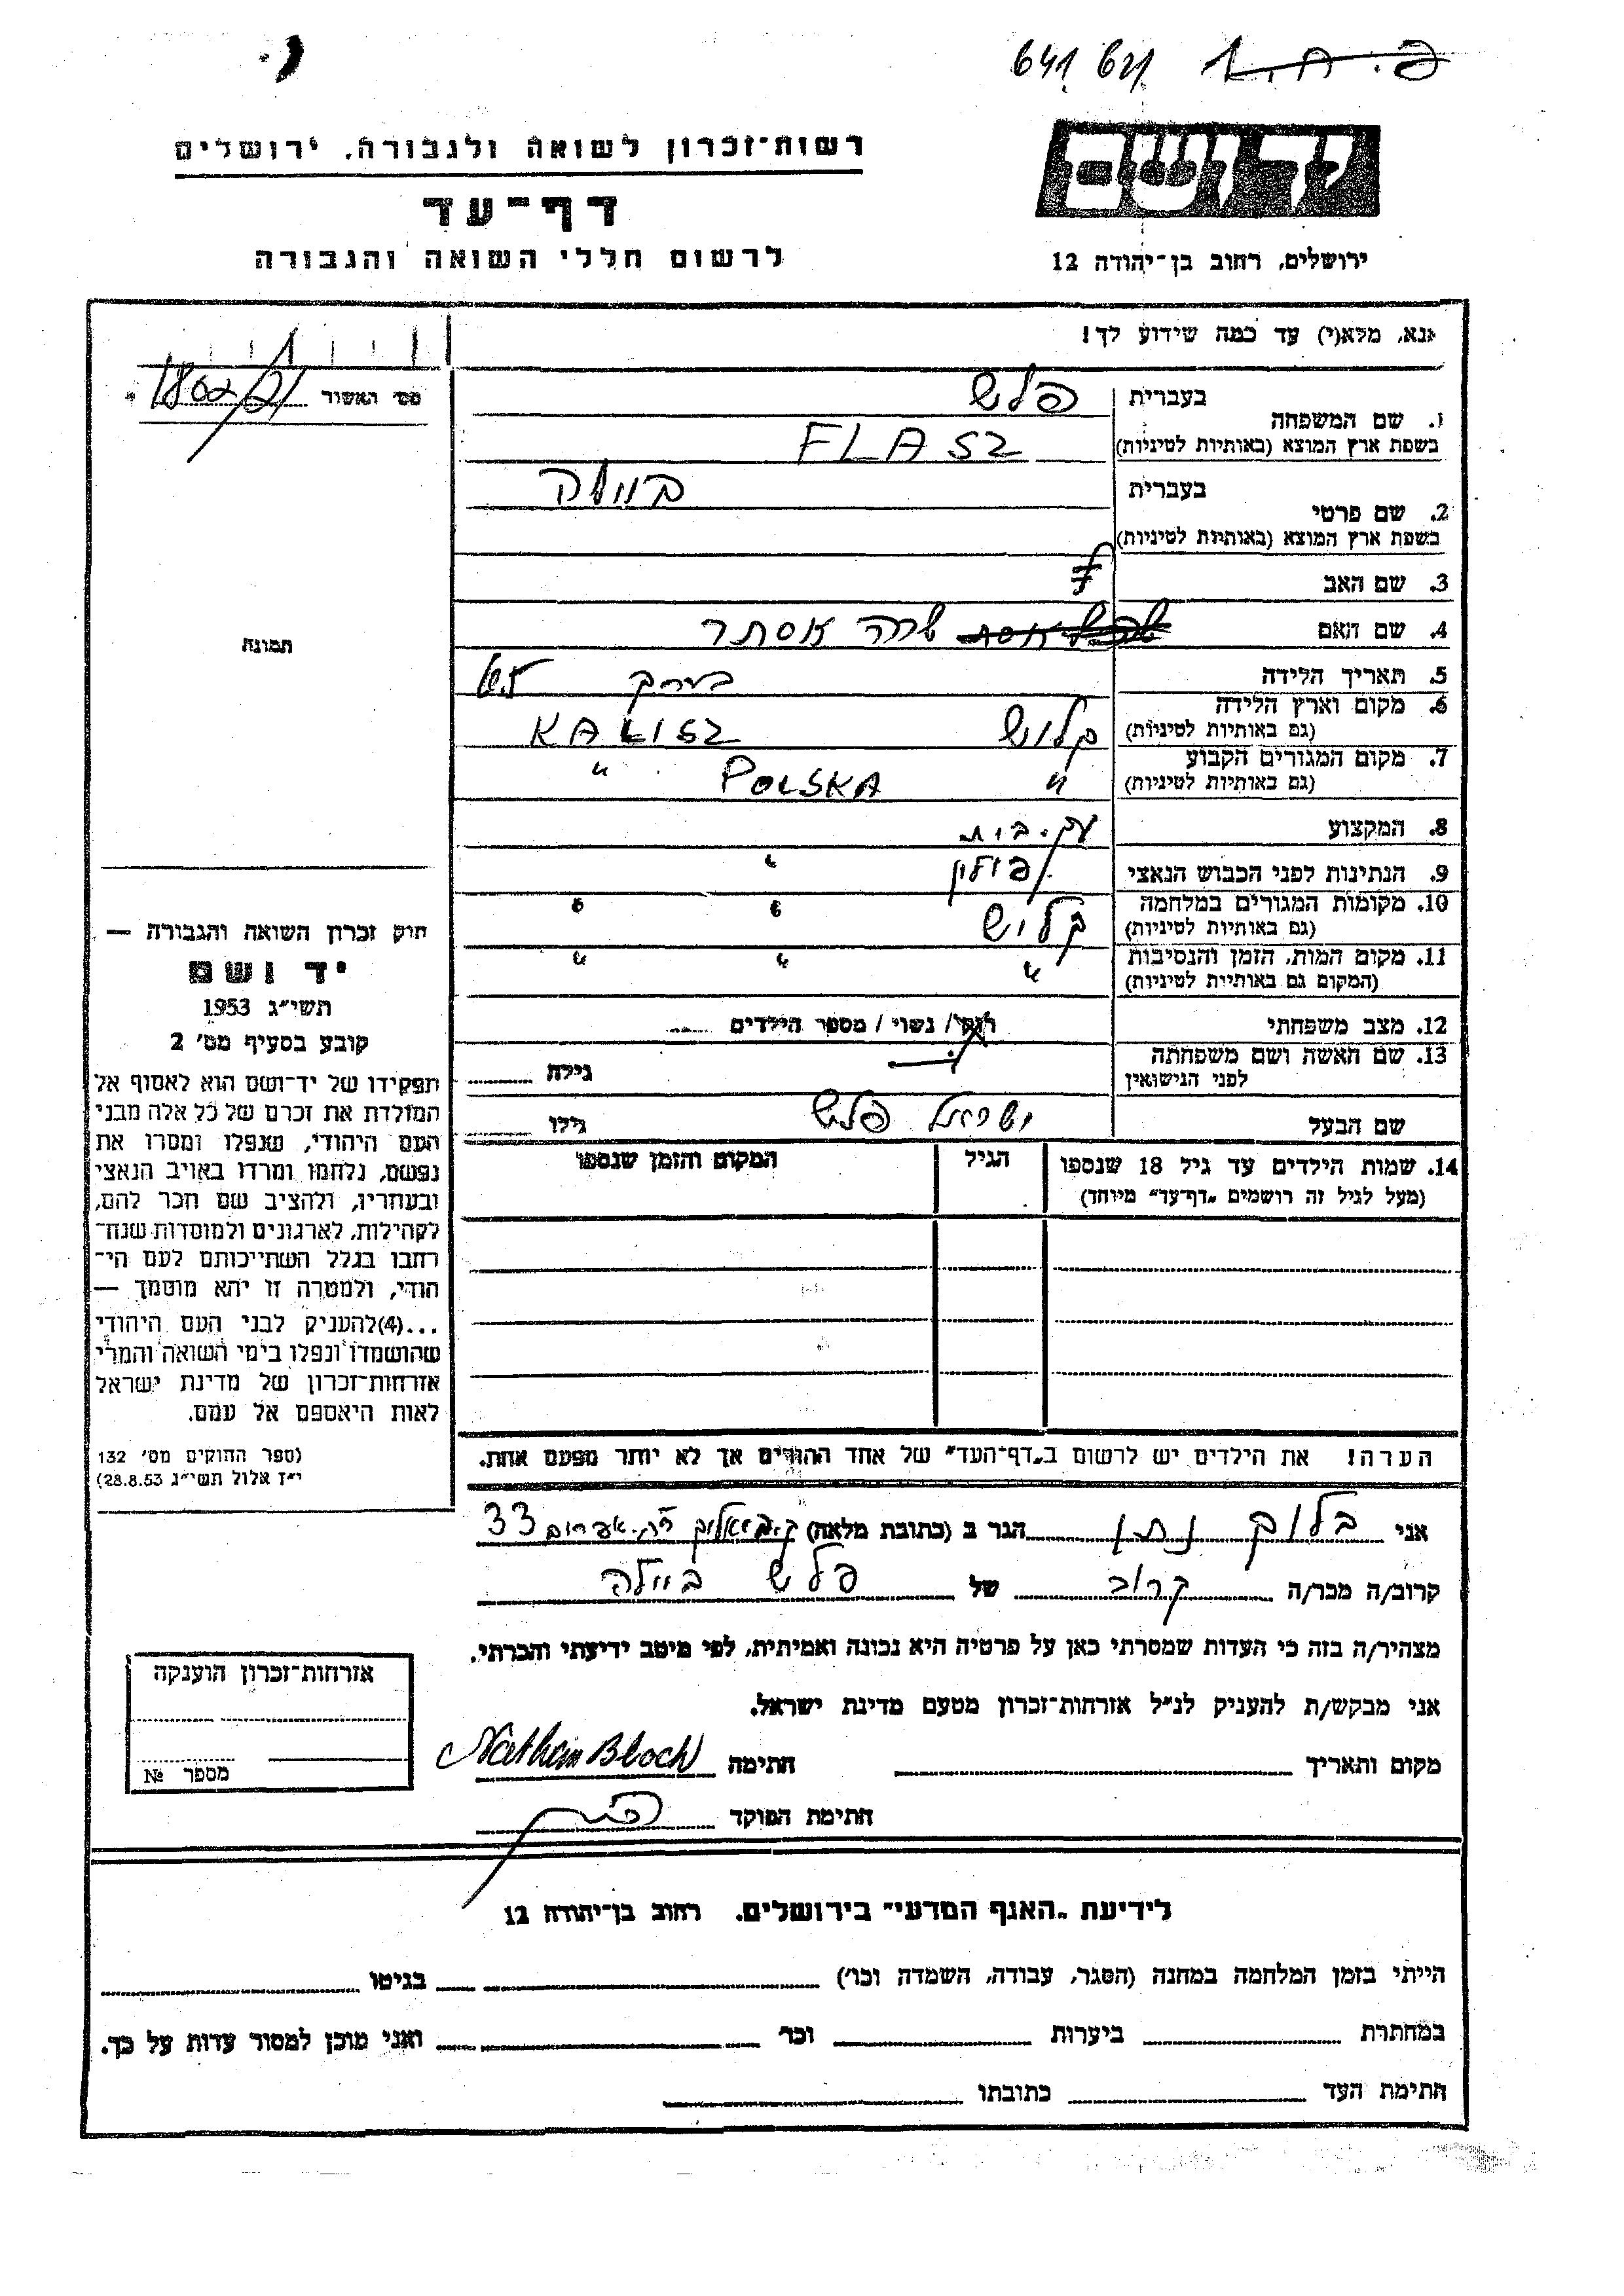 641
רשות-זכרון לשואה ולגבורה, ירושלים
דף-עד
לרשום חללי השואה והגבורה
ירושלים, רחוב בן-יהודה 12
אנא, מלא(י) עד כמה שידוע לך!
מס׳ האשור 1802/21
1. שם המשפחה
בעברית פלש
בשפת ארץ המוצא (באותיות לטיניות) FLASZ
2. שם פרטי
בעברית ביילה
בשפת ארץ המוצא (באותיות לטיניות)
3. שם האב
4. שם האם שרה אסתר
5. תאריך הלידה בערך
6. מקום וארץ הלידה קליש KALISZ
(גם באותיות לטיניות)
7. מקום המגורים הקבוע " POLSKA "
(גם באותיות לטיניות)
8. המקצוע עק. בית
9. הנתינות לפני הכבוש הנאצי פולין "
10. מקומות המגורים במלחמה קליש " "
(גם באותיות לטיניות)
11. מקום המות, הזמן והנסיבות " " "
(המקום גם באותיות לטיניות)
12. מצב משפחתי רווק / נשוי / מספר הילדים
13. שם האשה ושם משפחתה גילה
לפני הנישואין
שם הבעל ישראל פלש גילו
14. שמות הילדים עד גיל 18 שנספו הגיל המקום והזמן שנספו
(מעל לגיל זה רושמים "דף-עד" מיוחד)
הערה! את הילדים יש לרשום ב"דף-העד" של אחד ההורים אך לא יותר מפעם אחת.
תמונה
חוק זכרון השואה והגבורה —
יד ושם
תשי"ג 1953
קובע בסעיף מס׳ 2
תפקידו של יד-ושם הוא לאסוף אל
המולדת את זכרם של כל אלה מבני
העם היהודי, שנפלו ומסרו את
נפשם, נלחמו ומרדו באויב הנאצי
ובעוזריו, ולהציב שם וזכר להם,
לקהילות, לארגונים ולמוסדות שנח-
רחבו בגלל השתייכותם לעם הי-
הודי, ולמטרה זו יהא מוסמך —
...(4)להעניק לבני העם היהודי
שהושמדו ונפלו בימי השואה והמרי
אזרחות-זכרון של מדינת ישראל
לאות היאספם אל עמם.
(ספר החוקים מס׳ 132
י"ז אלול תשי"ג 28.8.53)
אני בלוק נתן הגר ב (כתובת מלאה) 33
קרוב/ה מכר/ה קרוב של פלש ביילה
מצהיר/ה בזה כי העדות שמסרתי כאן על פרטיה היא נכונה ואמיתית, לפי מיטב ידיעתי והכרתי.
אני מבקש/ת להעניק לנ"ל אזרחות-זכרון מטעם מדינת ישראל.
מקום ותאריך חתימה Nathan Bloch
חתימת הפוקד
אזרחות-זכרון הוענקה
מספר №
לידיעת "האגף המדעי" בירושלים. רחוב בן-יהודה 12
הייתי בזמן המלחמה במחנה (הסגר, עבודה, השמדה וכו׳) בגיטו
במחתרת ביערות וכו׳ ואני מוכן למסור עדות על כך.
חתימת העד כתובתו